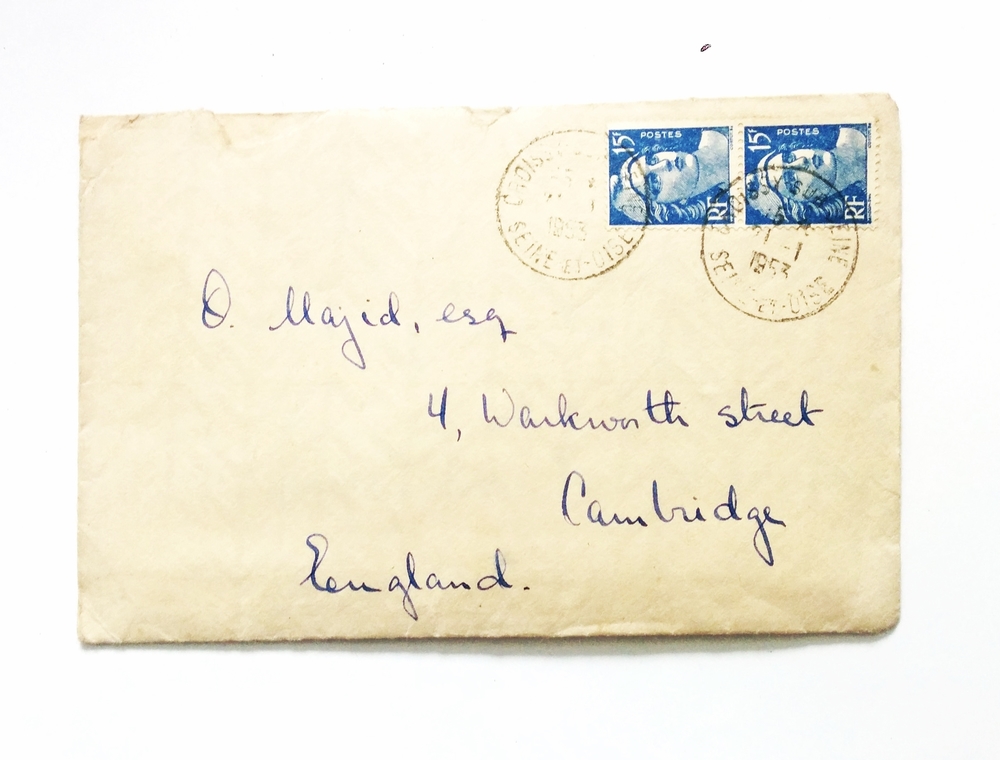 15F POSTES RF
15F POSTES RF
CROISSY
1953
SEINE-ET-OISE
CROISSY SUR SEINE
1953
SEINE-ET-OISE
O. Majid, esq
4, Warkworth street
Cambridge
England.